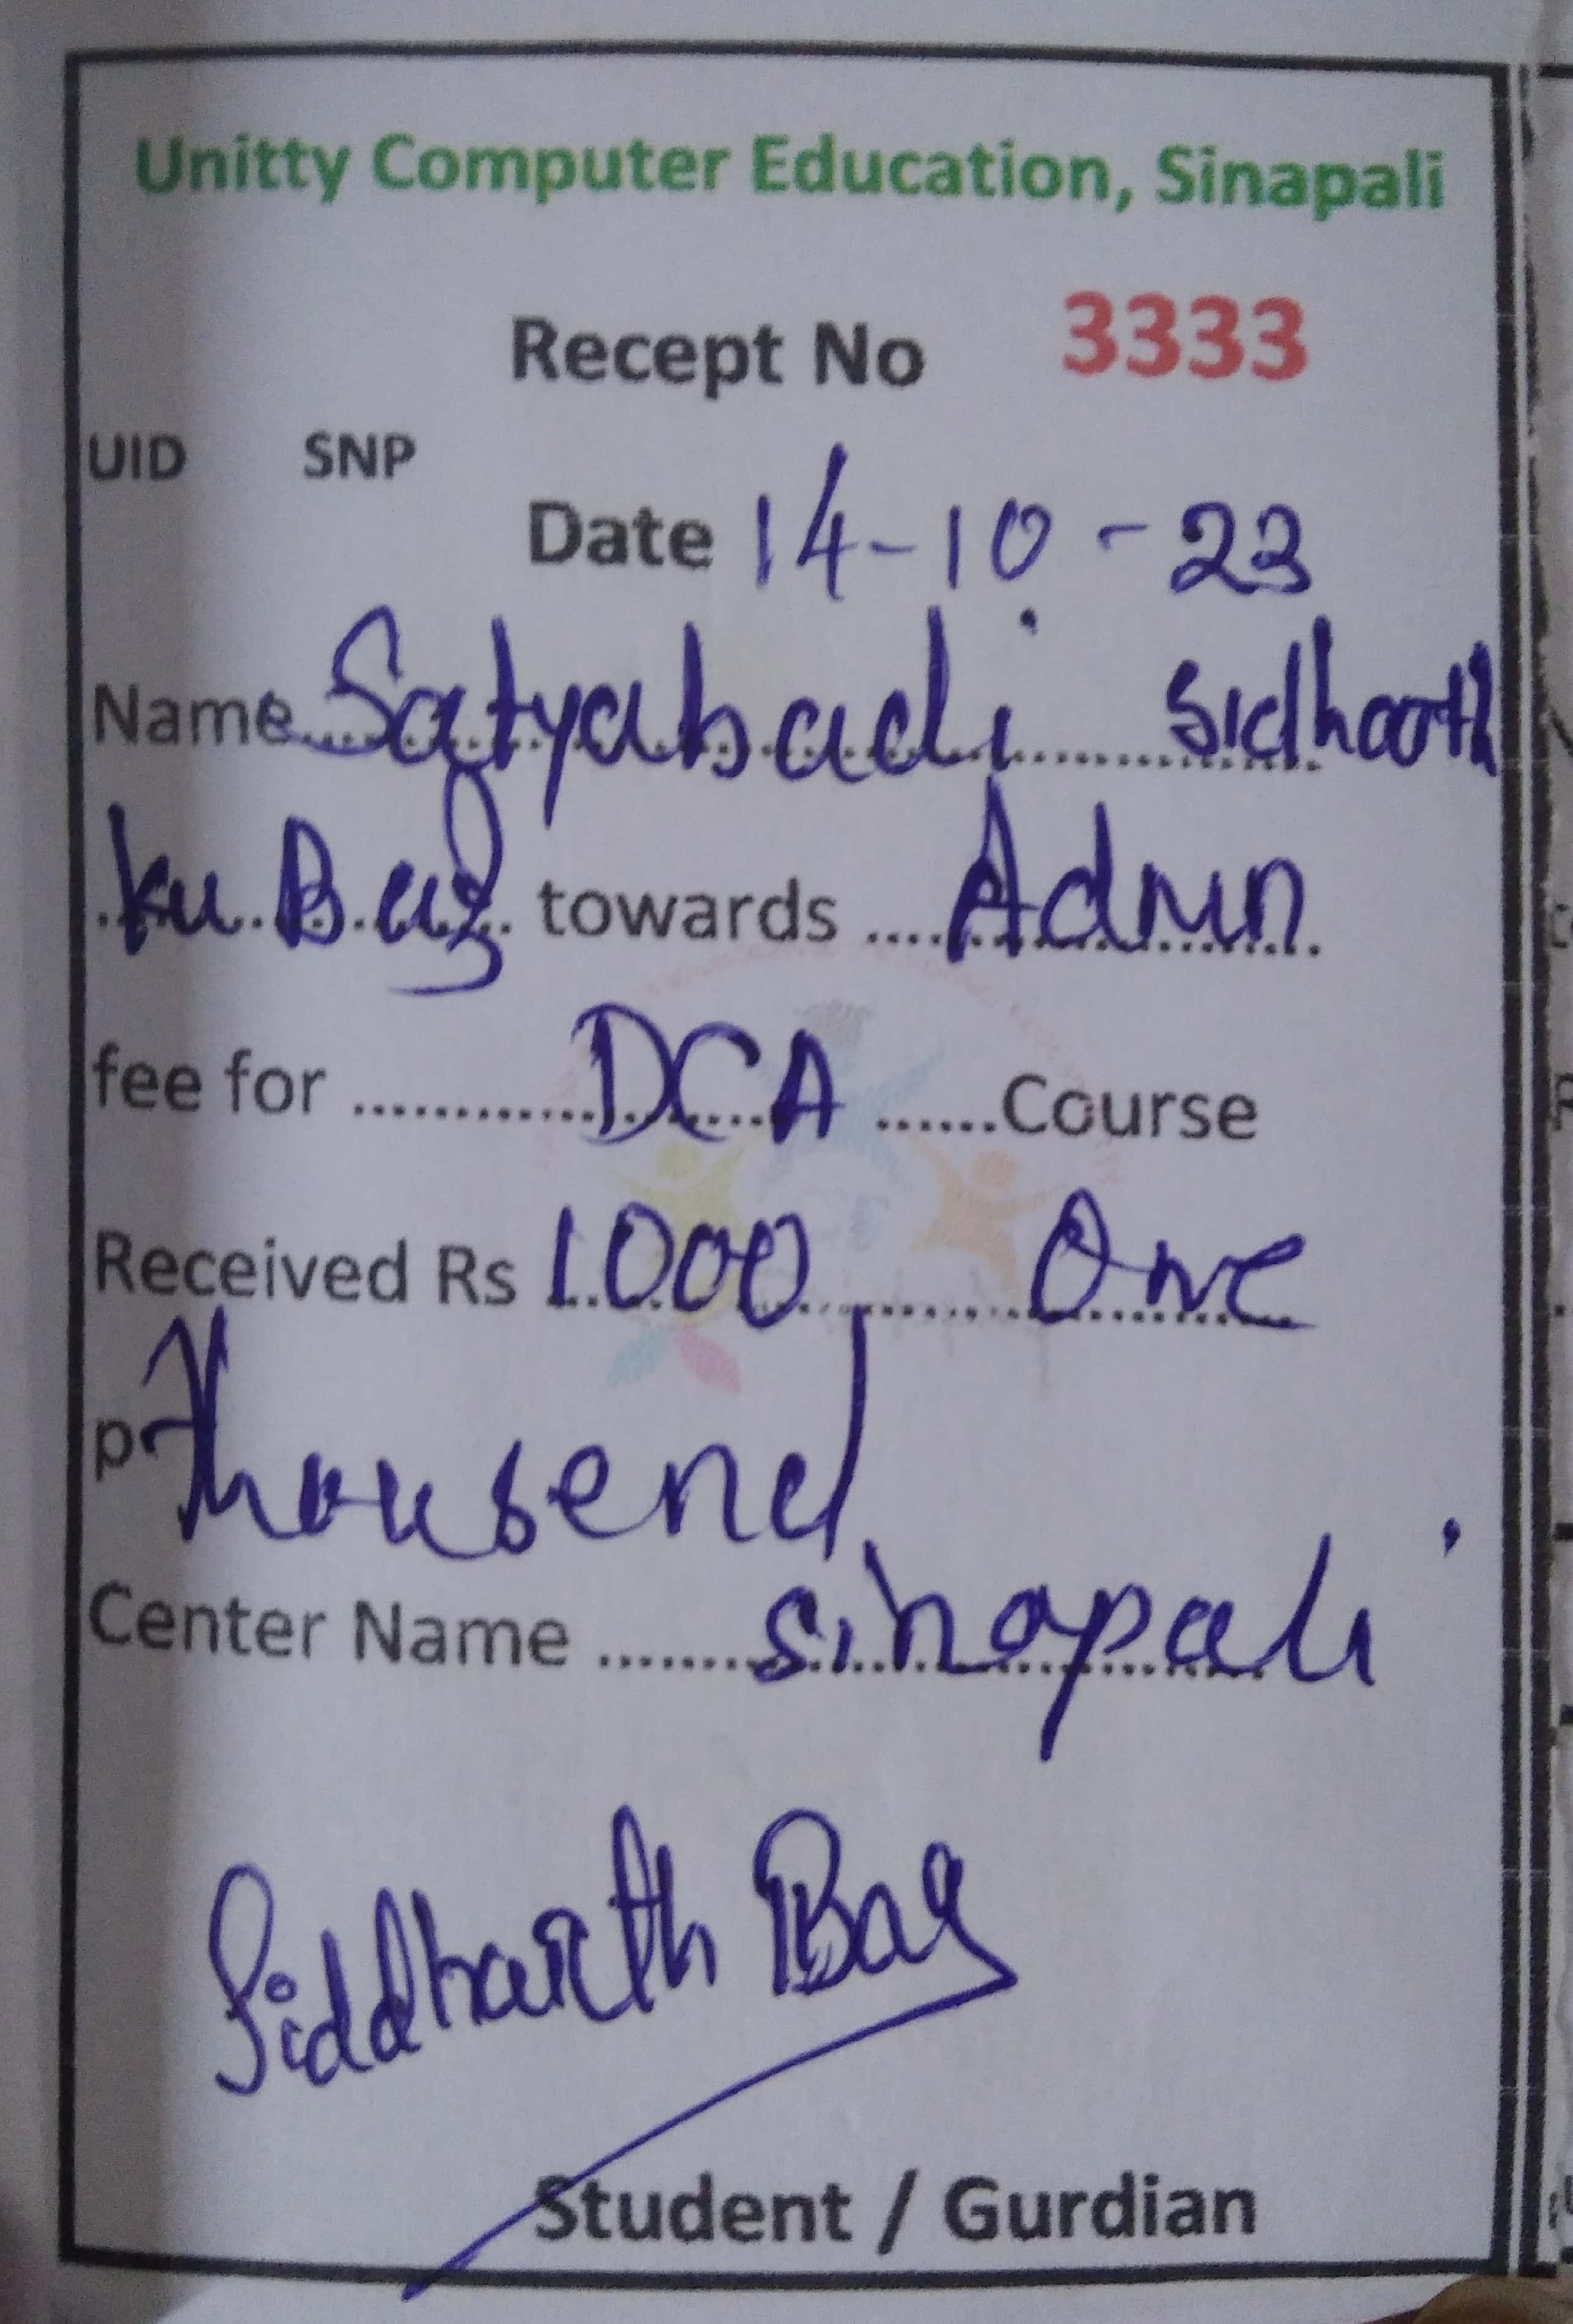 Unitty Computer Education, Sinapali
Recept No 3333
UID SNP
Date 14-10-23
Name Satyabadi Sidharth
Ku. Bag towards Admn.
fee for DCA Course
Received Rs 1000 One
p Thousend
Center Name Sinapali
Siddharth Bag
Student / Gurdian